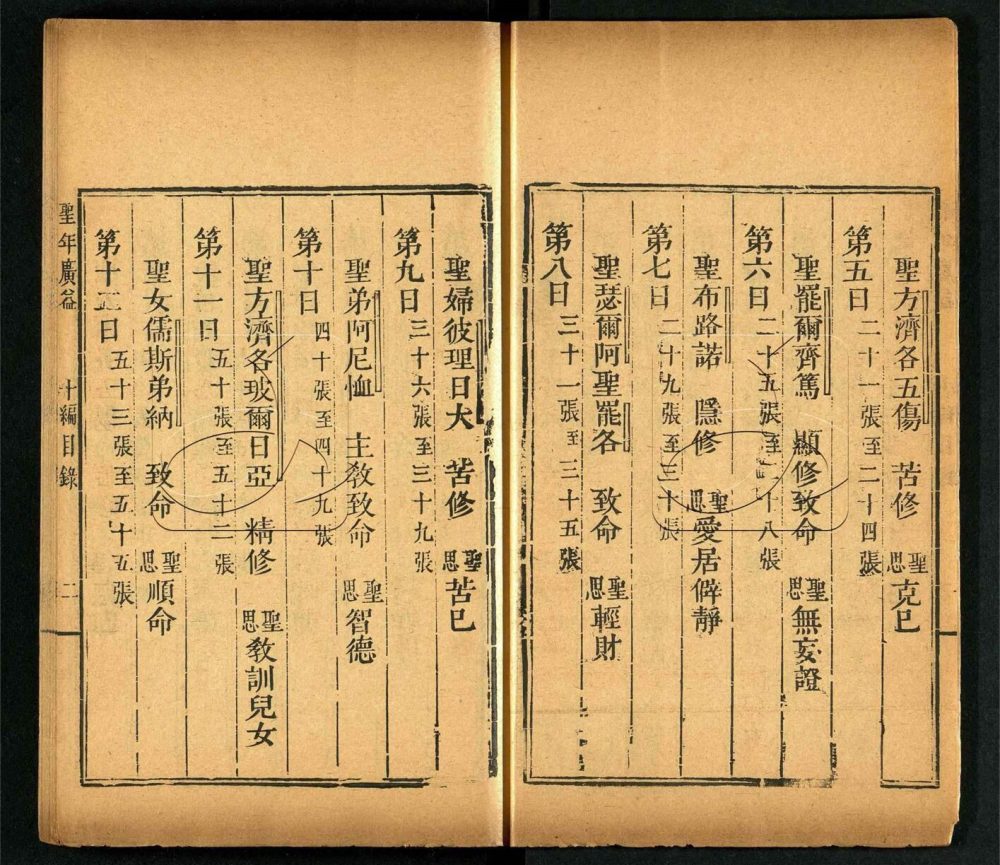 聖方濟各五傷 苦修 聖思克已
第五日 二十一張至二十四張
聖罷爾齊篤 顯修致命 聖思無妄證
第六日 二十五張至二十八張
聖布路諾 隱修 聖思愛居僻靜
第七日 二十九張至三十張
聖瑟爾阿聖罷各 致命 聖思輕財
第八日 三十一張至三十五張
聖婦彼理日大 苦修 聖思苦已
第九日 三十六張至三十九張
聖弟阿尼恤 主教致命 聖思智德
第十日 四十張至四十九張
聖方濟各玻爾日亞 精修 聖思教訓兒女
第十一日 五十張至五十二張
聖女儒斯弟納 致命 聖思順命
第十二日 五十三張至五十五張
聖年廣益 十編目錄 二